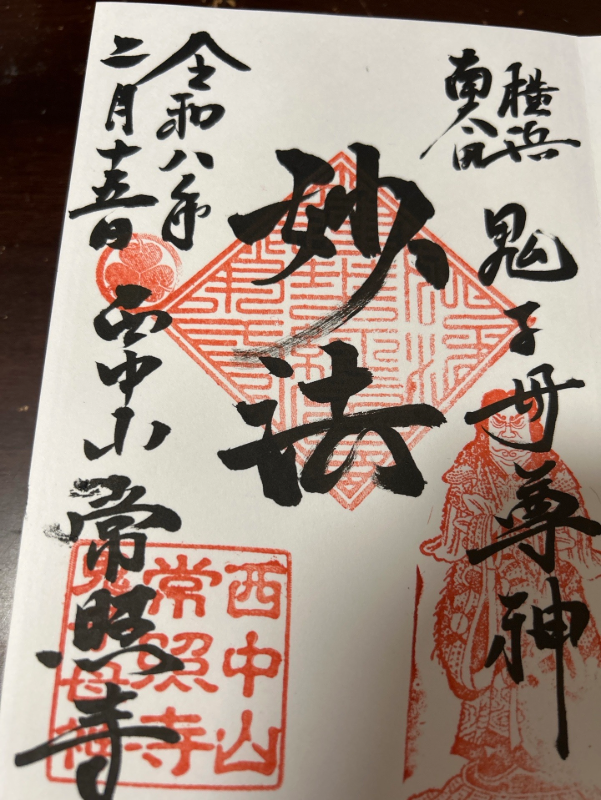 横浜
南太田
鬼子母尊神
妙法
令和八年
二月十五日
西中山常照寺
西中山
常照寺
鬼子母神